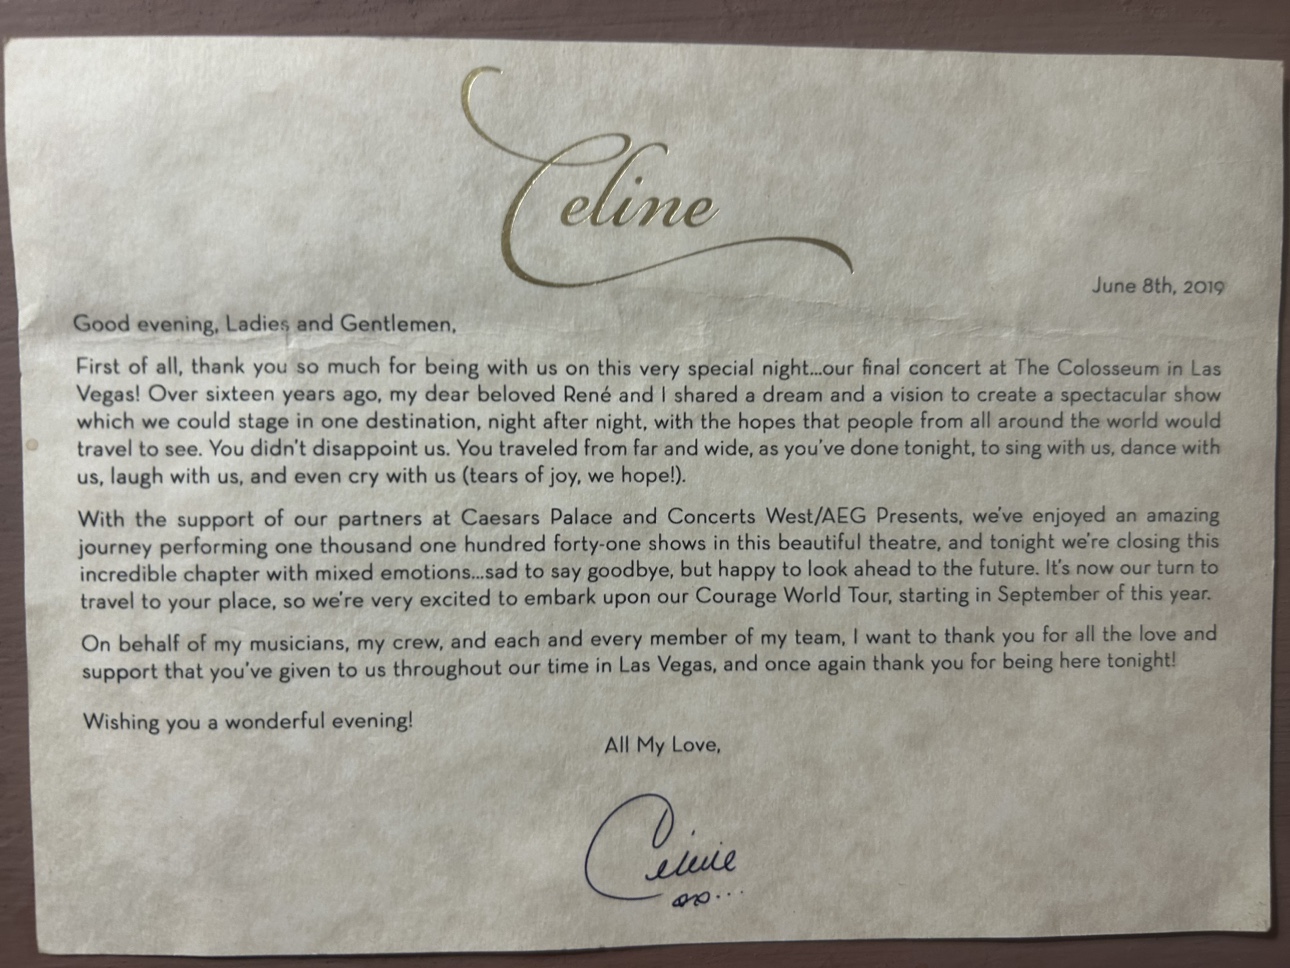 Celine
June 8th, 2019
Good evening, Ladies and Gentlemen,
First of all, thank you so much for being with us on this very special night...our final concert at The Colosseum in Las
Vegas! Over sixteen years ago, my dear beloved René and I shared a dream and a vision to create a spectacular show
which we could stage in one destination, night after night, with the hopes that people from all around the world would
travel to see. You didn't disappoint us. You traveled from far and wide, as you've done tonight, to sing with us, dance with
us, laugh with us, and even cry with us (tears of joy, we hope!).
With the support of our partners at Caesars Palace and Concerts West/AEG Presents, we've enjoyed an amazing
journey performing one thousand one hundred forty-one shows in this beautiful theatre, and tonight we're closing this
incredible chapter with mixed emotions...sad to say goodbye, but happy to look ahead to the future. It's now our turn to
travel to your place, so we're very excited to embark upon our Courage World Tour, starting in September of this year.
On behalf of my musicians, my crew, and each and every member of my team, I want to thank you for all the love and
support that you've given to us throughout our time in Las Vegas, and once again thank you for being here tonight!
Wishing you a wonderful evening!
All My Love,
Celine
xx...